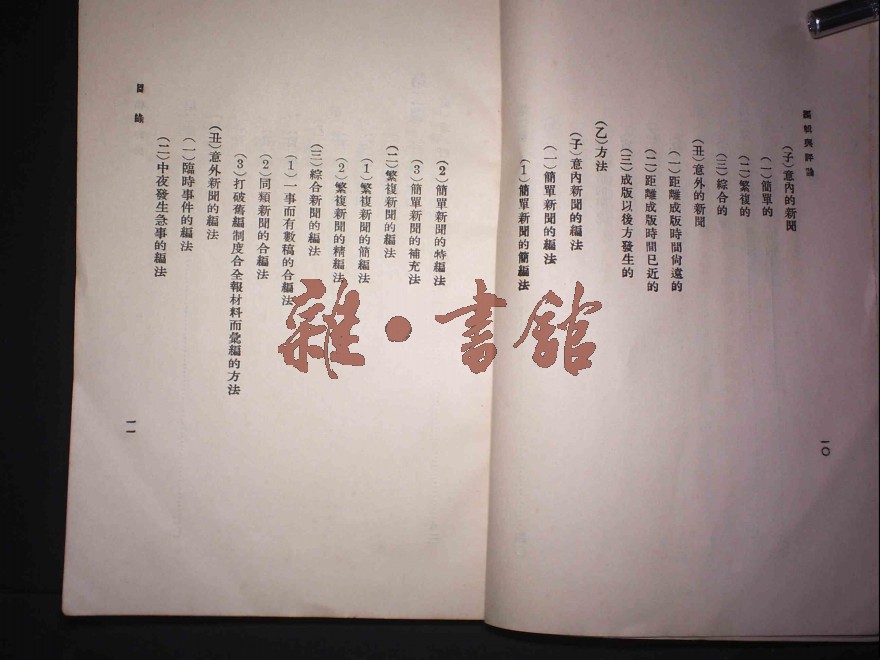 編輯與評論
(子)意內的新聞
(一)簡單的
(二)繁複的
(三)綜合的
(丑)意外的新聞
(一)距離成版時間尙遠的
(二)距離成版時間已近的
(三)成版以後方發生的
(乙)方法
(子)意內新聞的編法
(一)簡單新聞的編法
(1)簡單新聞的簡編法
一〇
(2)簡單新聞的特編法
(3)簡單新聞的補充法
(二)繁複新聞的編法
(1)繁複新聞的簡編法
(2)繁複新聞的精編法
(三)綜合新聞的編法
(1)一事而有數稿的合編法
(2)同類新聞的合編法
(3)打破舊編制度合全報材料而彙編的方法
(丑)意外新聞的編法
(一)臨時事件的編法
(二)中夜發生急事的編法
目錄
一一
雜·書館